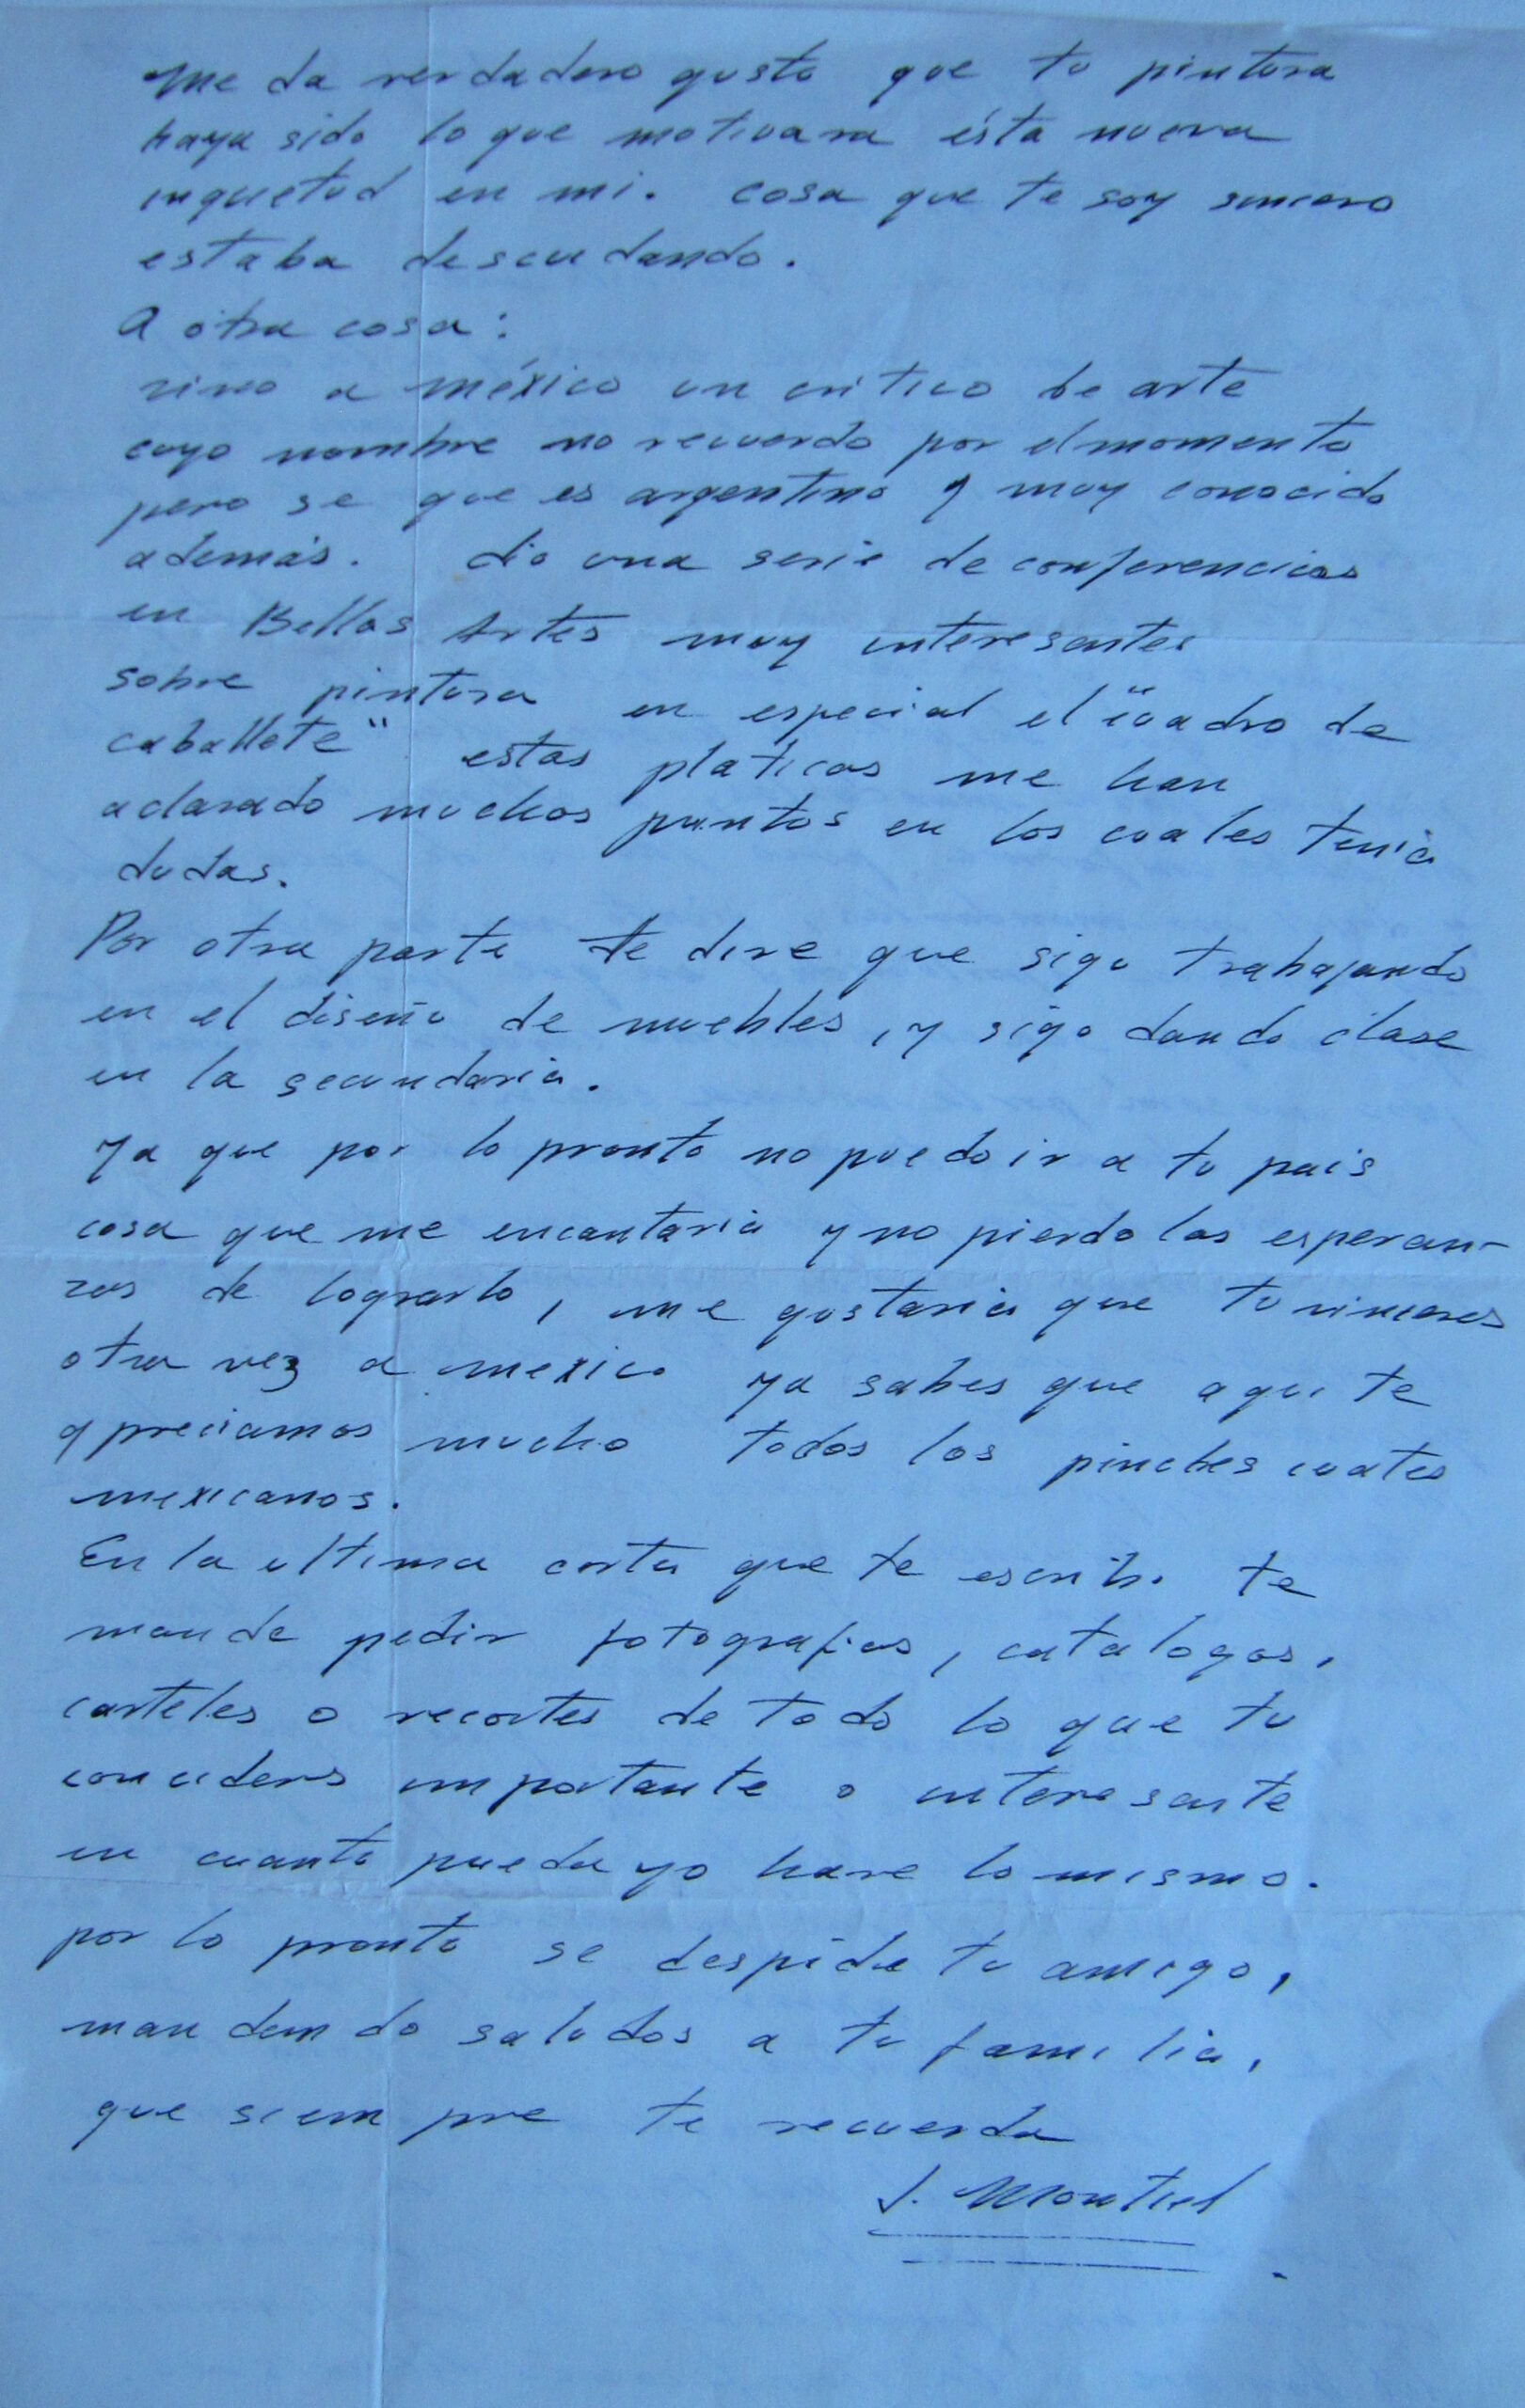 Me da verdadero gusto que tu pintura
haya sido lo que motivara ésta nueva
inquietud en mi. cosa que te soy sincero
estaba descuidando.
A otra cosa:
vino a méxico un critico de arte
cuyo nombre no recuerdo por el momento
pero se que es argentino y muy conocido
además. dio una serie de conferencias
en Bellas Artes muy interesantes
sobre pintura en especial el "cuadro de
caballete" estas platicas me han
aclarado muchos puntos en los cuales tenia
dudas.
Por otra parte te dire que sigo trabajando
en el diseño de muebles, y sigo dando clase
en la secundaria.
Ya que por lo pronto no puedo ir a tu pais
cosa que me encantaria y no pierdo las esperan-
zas de lograrlo, me gustaria que tu vinieras
otra vez a mexico ya sabes que aqui te
apreciamos mucho todos los pinches cuates
mexicanos.
En la ultima carta que te escribi te
mande pedir fotografias, catalogos,
carteles o recortes de todo lo que tu
consideres importante o interesante
en cuanto pueda yo hare lo mismo.
por lo pronto se despide tu amigo,
mandando saludos a tu familia,
que siempre te recuerda
J. Montiel